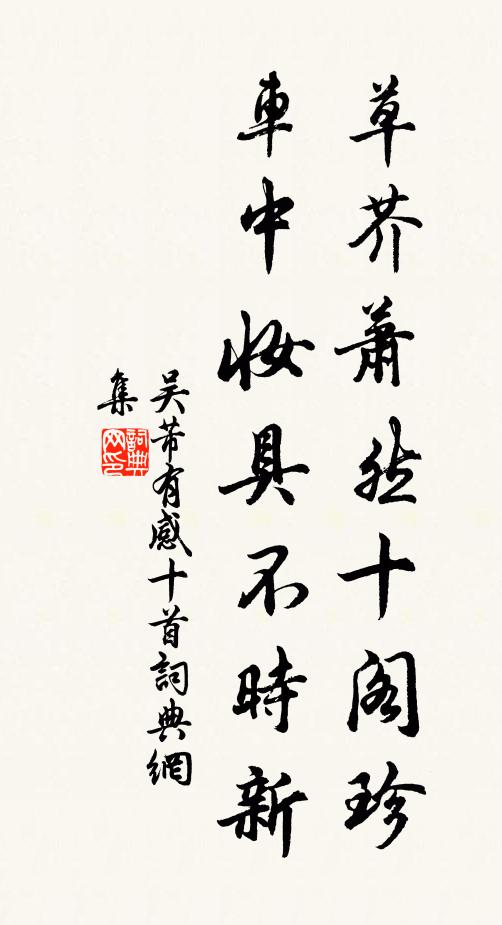 草芥蕭然十閣珍
車中妝具不時新
吴芾有感十首詞典網
集
詞典
网印